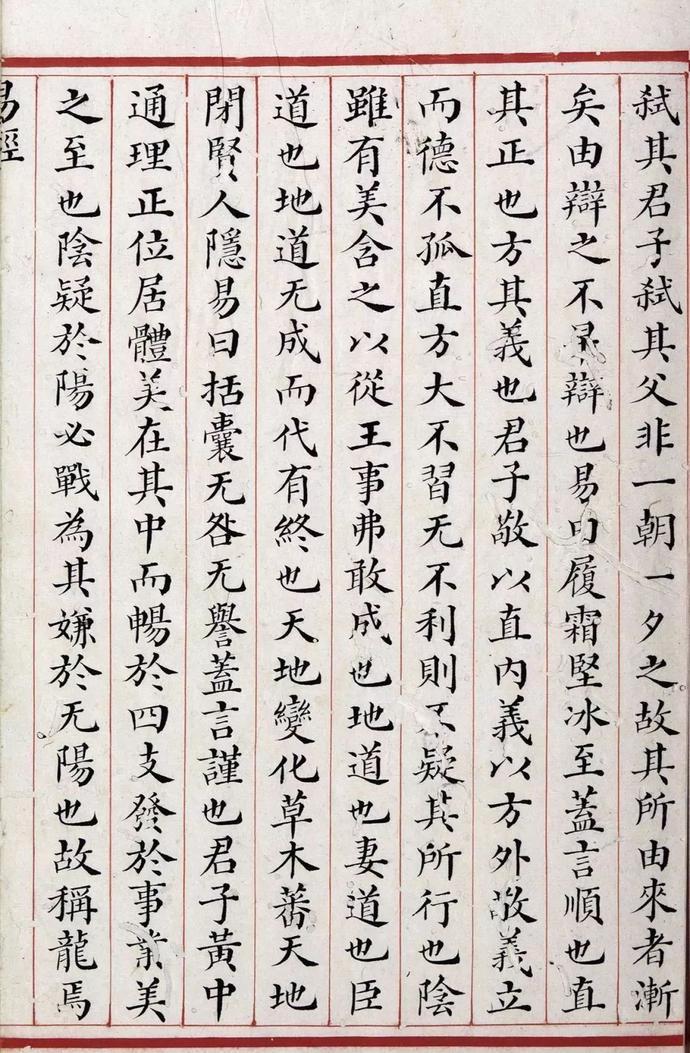 弑其君子弑其父非一朝一夕之故其所由來者漸
矣由辯之不早辯也易曰履霜堅冰至蓋言順也直
其正也方其義也君子敬以直內義以方外敬義立
而德不孤直方大不習无不利則不疑其所行也陰
雖有美含之以從王事弗敢成也地道也妻道也臣
道也地道无成而代有終也天地變化草木蕃天地
閉賢人隱易曰括囊无咎无譽蓋言謹也君子黃中
通理正位居體美在其中而暢於四支發於事業美
之至也陰疑於陽必戰為其嫌於无陽也故稱龍焉
易經